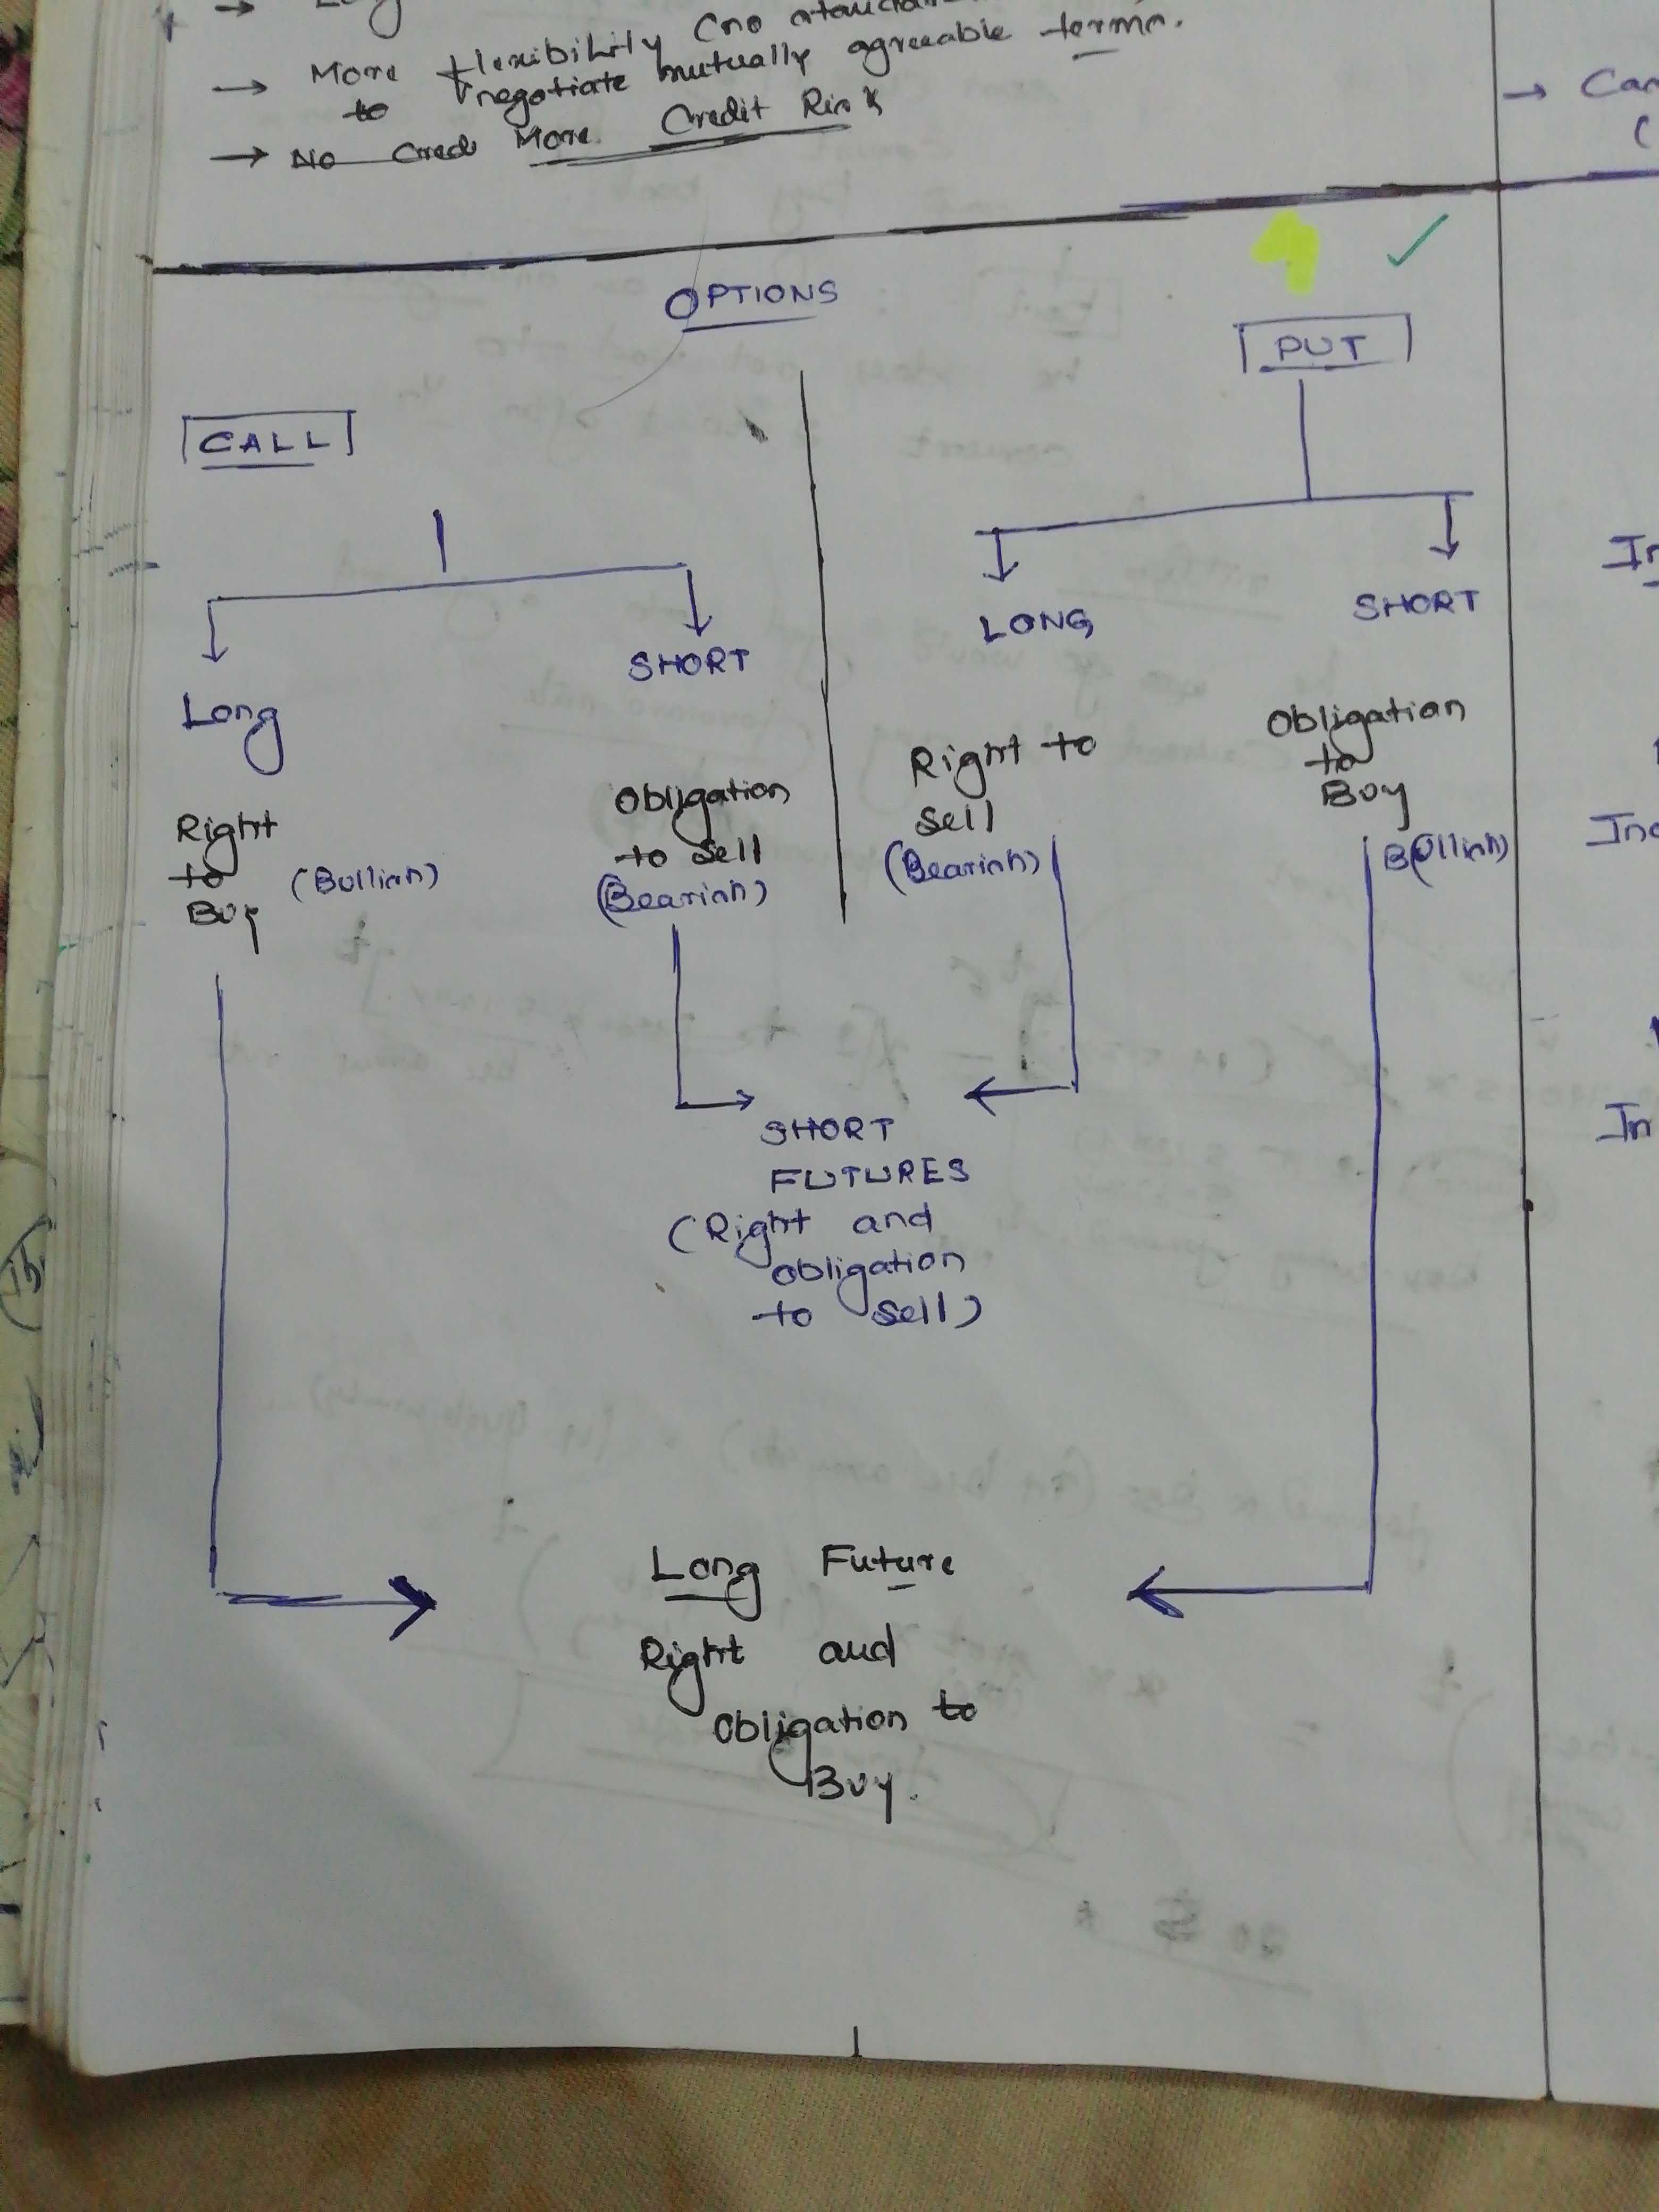 → More flexibility (no
to negotiate mutually agreeable terms.
→ No Cred More Credit Risk
→ Can
(
OPTIONS
CALL
PUT
Long
SHORT
LONG
SHORT
Right
to
Buy
(Bullish)
Obligation
to Sell
(Bearish)
Right to
Sell
(Bearish)
Obligation
to
Buy
(Bullish)
SHORT
FUTURES
(Right and
obligation
to sell)
Long Future
Right and
Obligation to
Buy.